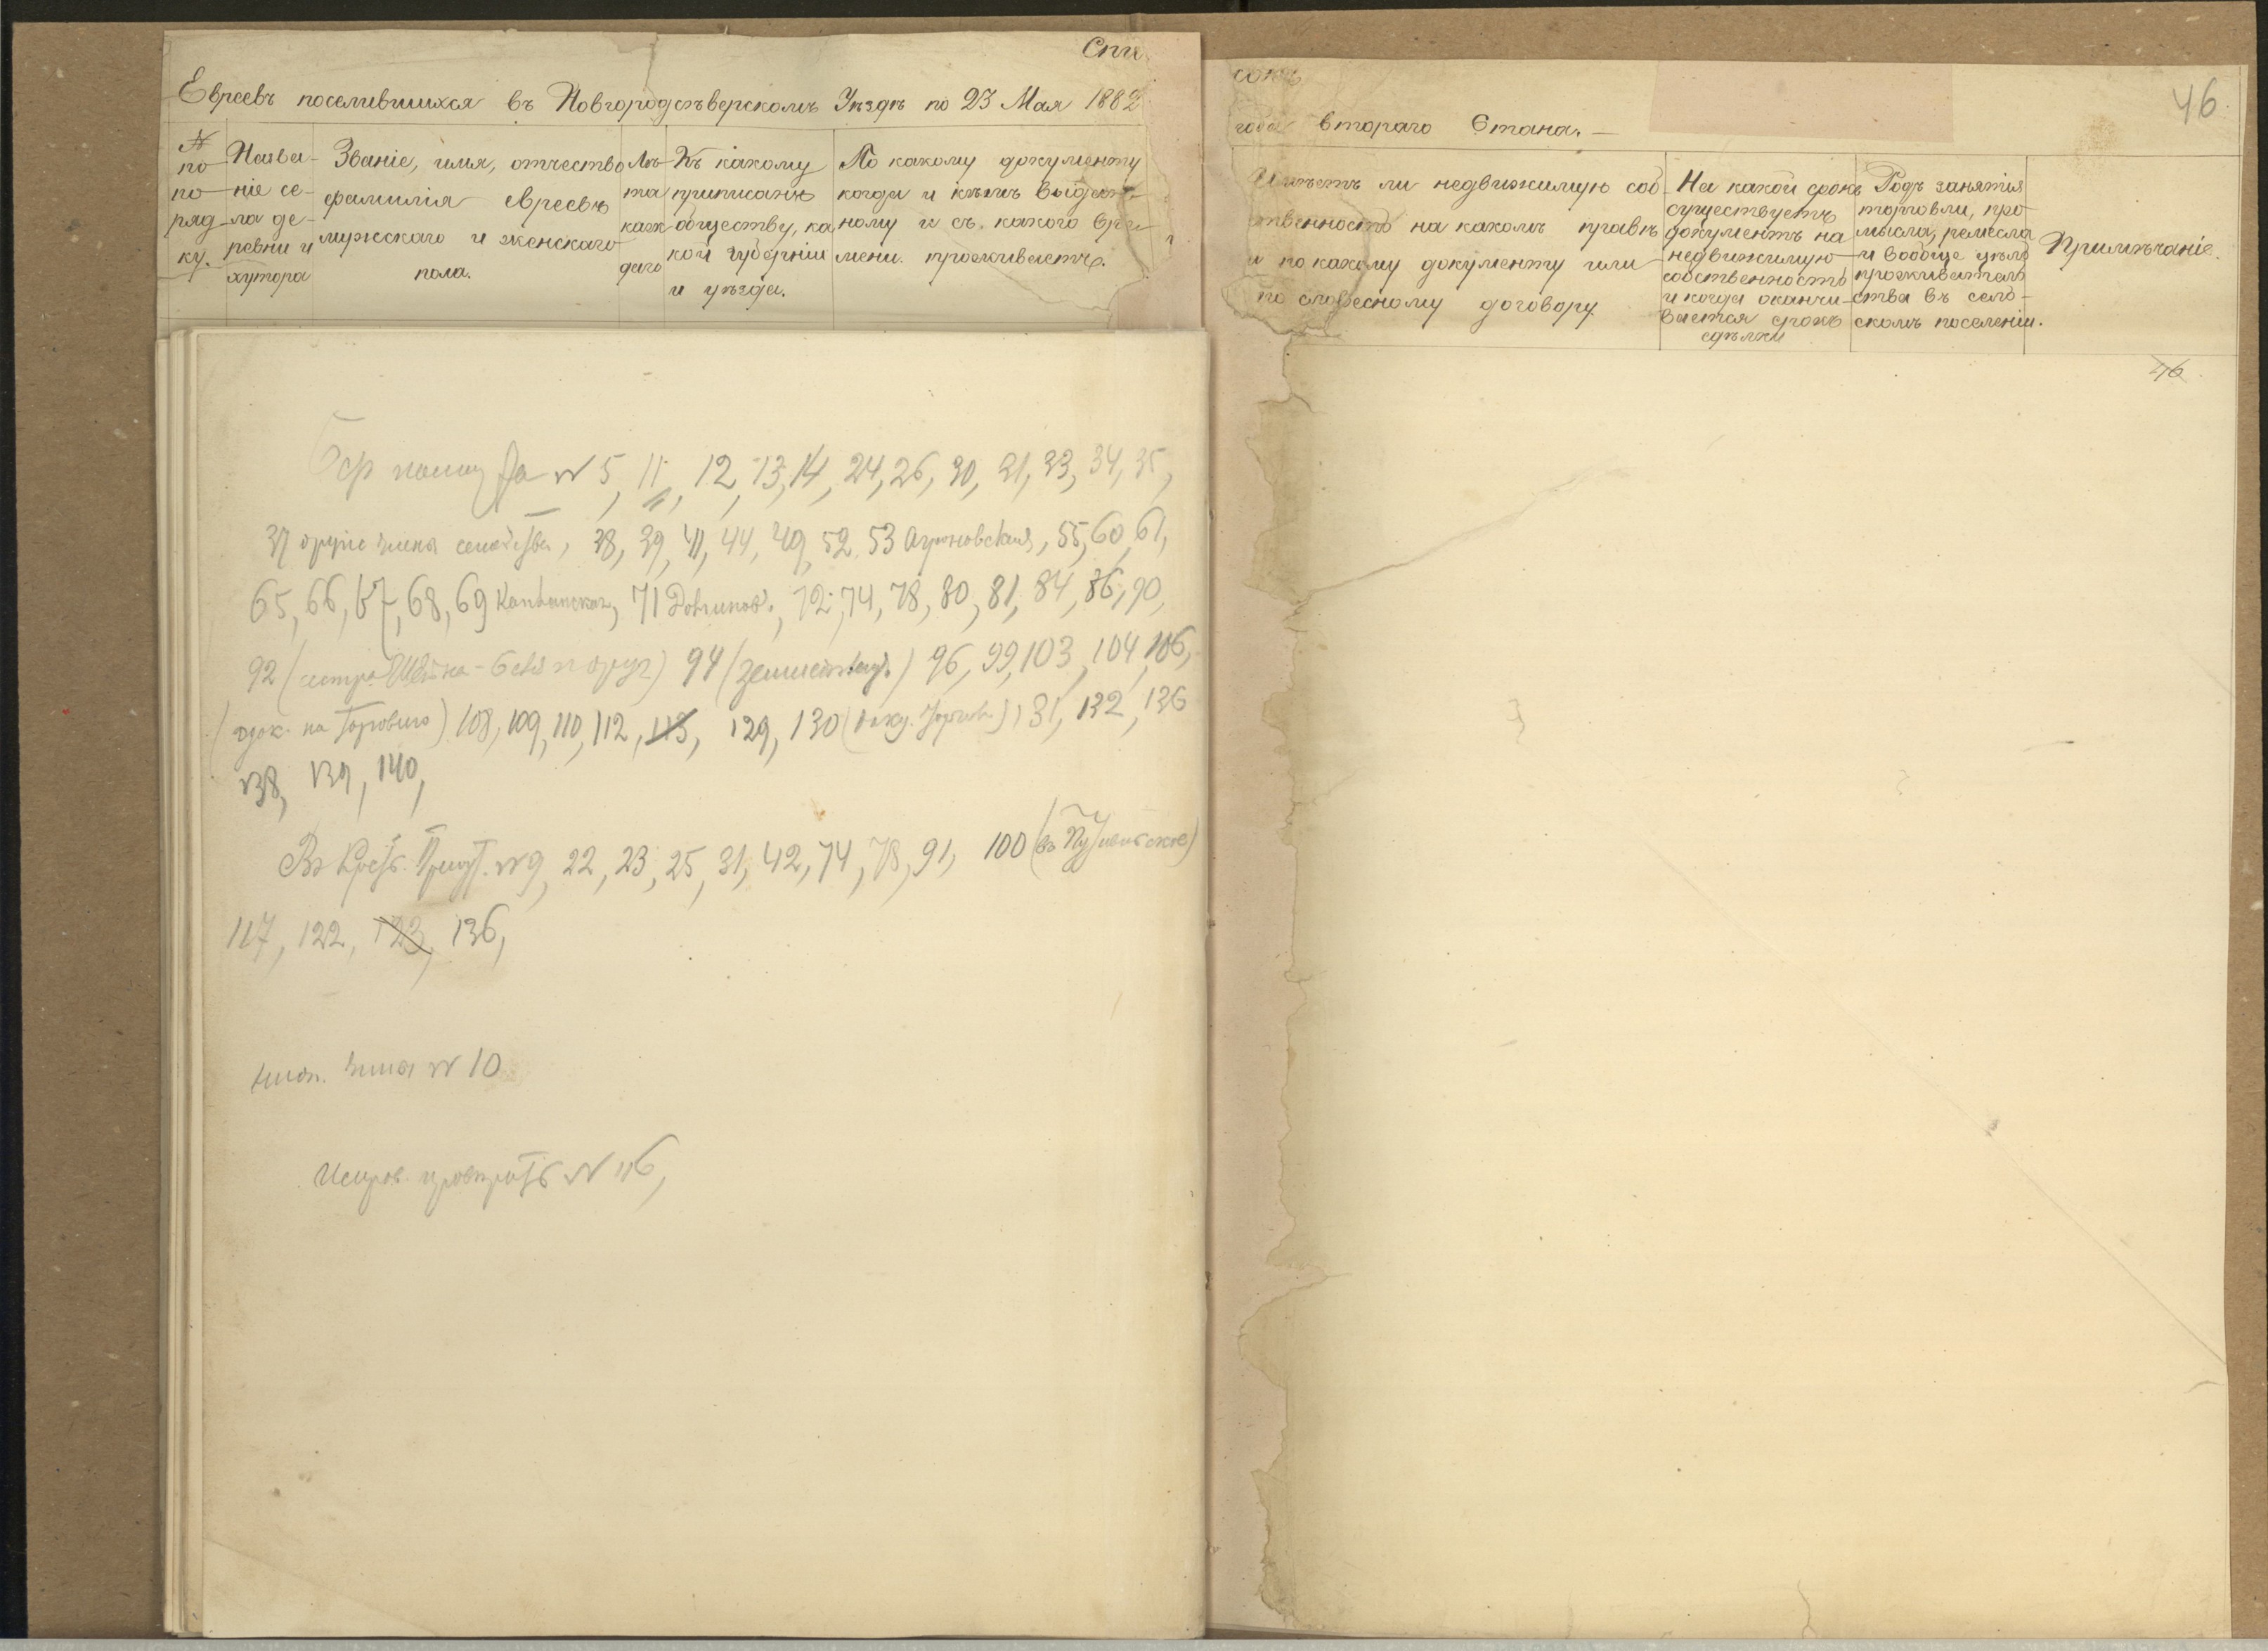 Спи
сокъ
46
Евреевъ поселившихся въ Новгородсѣверскомъ Уѣздѣ по 23 Мая 1882
года втораго Стана. —
№
по
по
ряд
ку.
Назва-
ніе се-
ла де-
ревни и
хутора
Званіе, имя, отчество
фамилія евреевъ
мужскаго и женскаго
пола.
Лѣ
та
каж
даго
Къ какому
приписанъ
обществу, ка
кой губерніи
и уѣзда.
По какому документу
когда и кѣмъ выдан-
ному и съ какого вре-
мени проживаетъ.
Имѣетъ ли недвижимую соб-
ственность на какомъ правѣ
и по какому документу или
по словесному договору
На какой срокъ
существуетъ
документъ на
недвижимую
собственность
и когда оканчи-
вается срокъ
сдѣлки
Родъ занятія
торговли, про
мысла, ремесла
и вообще цѣль
прожительь
ства въ сель-
скомъ поселеніи.
Примѣчаніе.
46
№ 5, 11, 12, 13, 14, 24, 26, 30, 31, 33, 34, 35,
37 другіе члены семейства, 38, 39, 41, 44, 49, 52, 53 Агроновская, 55, 60, 61,
65, 66, 67, 68, 69 71 72, 74, 78, 80, 81, 84, 86, 90,
92 (сестра 94 96, 99, 103, 104, 106,
(док. на торговлю) 108, 109, 110, 112, 113, 129, 130 131, 132, 136
138, 139, 140,
Въ № 9, 22, 23, 25, 31, 42, 74, 78, 91, 100 (въ
117, 122, 123, 136,
№ 10
Испров. провѣрить № 116,